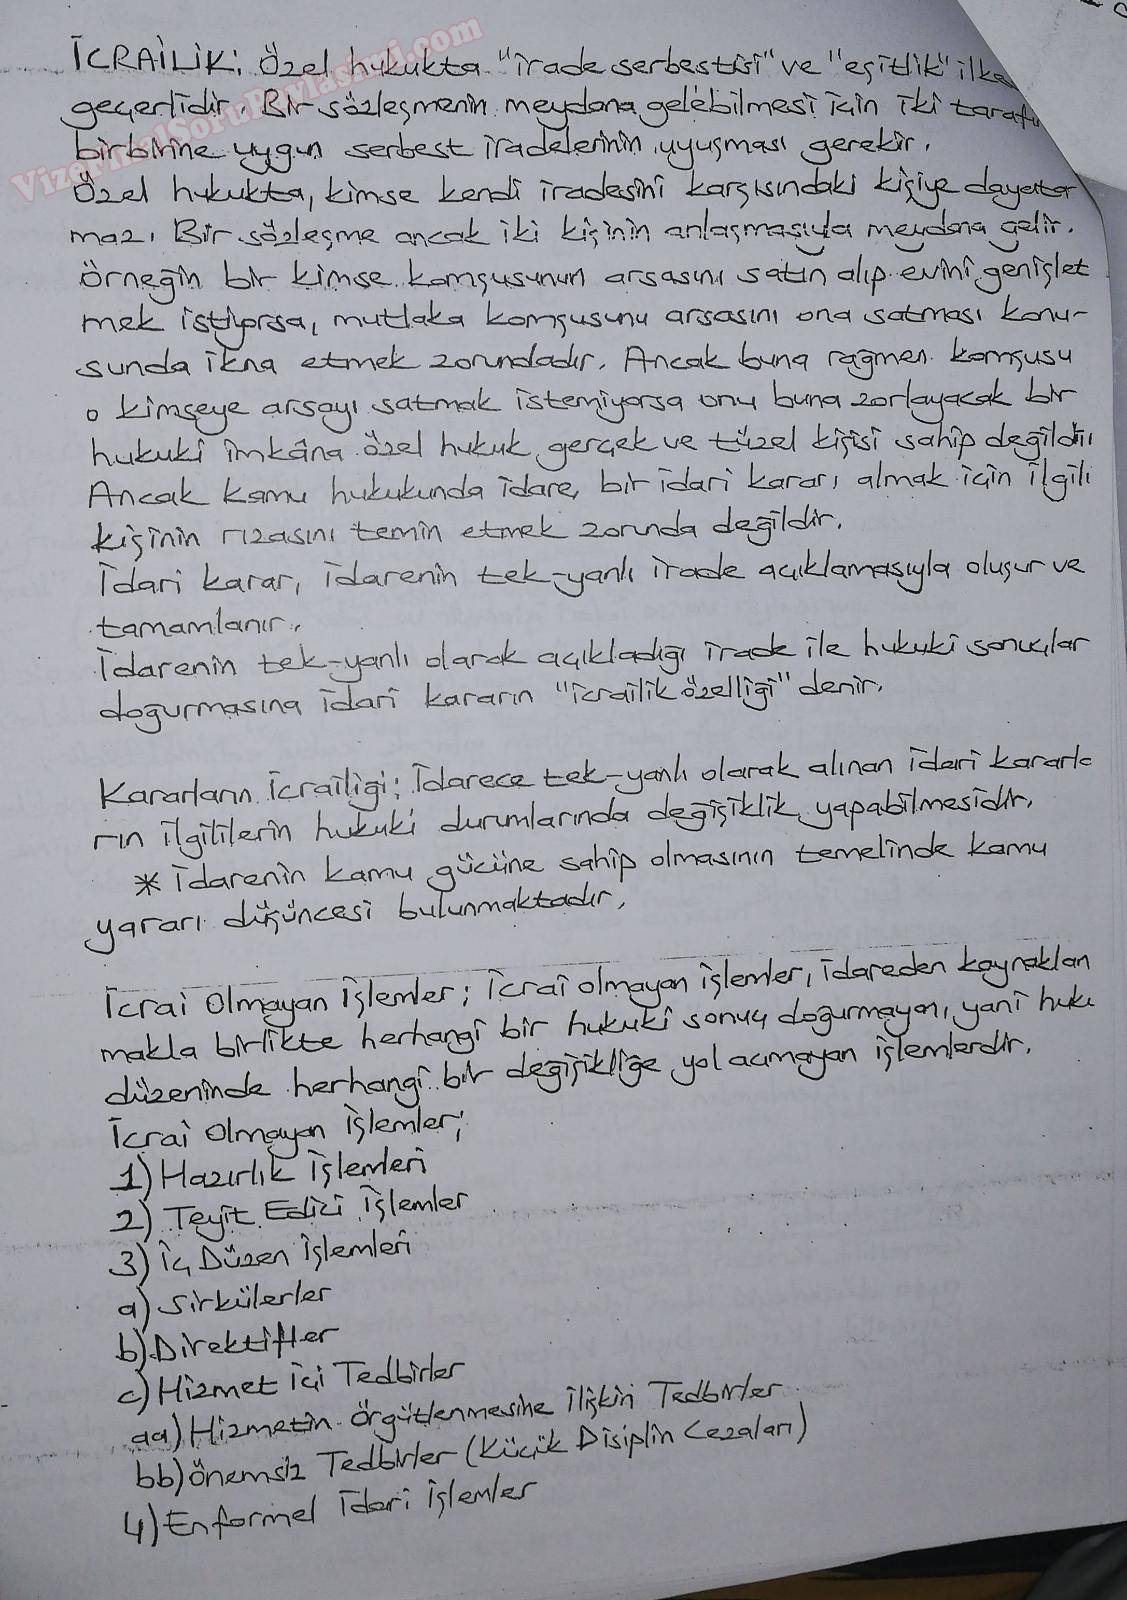 İCRAİLİK: Özel hukukta "irade serbestisi" ve "eşitlik" ilke
geçerlidir. Bir sözleşmenin meydana gelebilmesi için iki tarafın
birbirine uygun serbest iradelerinin uyuşması gerekir.
Özel hukukta, kimse kendi iradesini karşısındaki kişiye dayata
maz. Bir sözleşme ancak iki kişinin anlaşmasıyla meydana gelir.
Örneğin bir kimse komşusunun arsasını satın alıp evini genişlet
mek istiyorsa, mutlaka komşusunu arsasını ona satması konu-
sunda ikna etmek zorundadır. Ancak buna rağmen komşusu
o kimseye arsayı satmak istemiyorsa onu buna zorlayacak bir
hukuki imkâna özel hukuk gerçek ve tüzel kişisi sahip değildir.
Ancak kamu hukukunda idare, bir idari kararı almak için ilgili
kişinin rızasını temin etmek zorunda değildir.
İdari karar, idarenin tek-yanlı irade açıklamasıyla oluşur ve
tamamlanır.
İdarenin tek-yanlı olarak açıkladığı irade ile hukuki sonuçlar
doğurmasına idari kararın "icrailik özelliği" denir.
Kararların İcrailiği: İdarece tek-yanlı olarak alınan idari kararla
rın ilgililerin hukuki durumlarında değişiklik yapabilmesidir.
* İdarenin kamu gücüne sahip olmasının temelinde kamu
yararı düşüncesi bulunmaktadır.
İcrai Olmayan İşlemler; İcrai olmayan işlemler, idareden kaynaklan
makla birlikte herhangi bir hukuki sonuç doğurmayan, yani huku
düzeninde herhangi bir değişikliğe yol açmayan işlemlerdir.
İcrai Olmayan İşlemler;
1) Hazırlık İşlemleri
2) Teyit Edici İşlemler
3) İç Düzen İşlemleri
a) Sirkülerler
b) Direktifler
c) Hizmet içi Tedbirler
aa) Hizmetin Örgütlenmesine İlişkin Tedbirler
bb) Önemsiz Tedbirler (Küçük Disiplin Cezaları)
4) Enformel İdari İşlemler
VizeFinalSoruPaylasimi.com